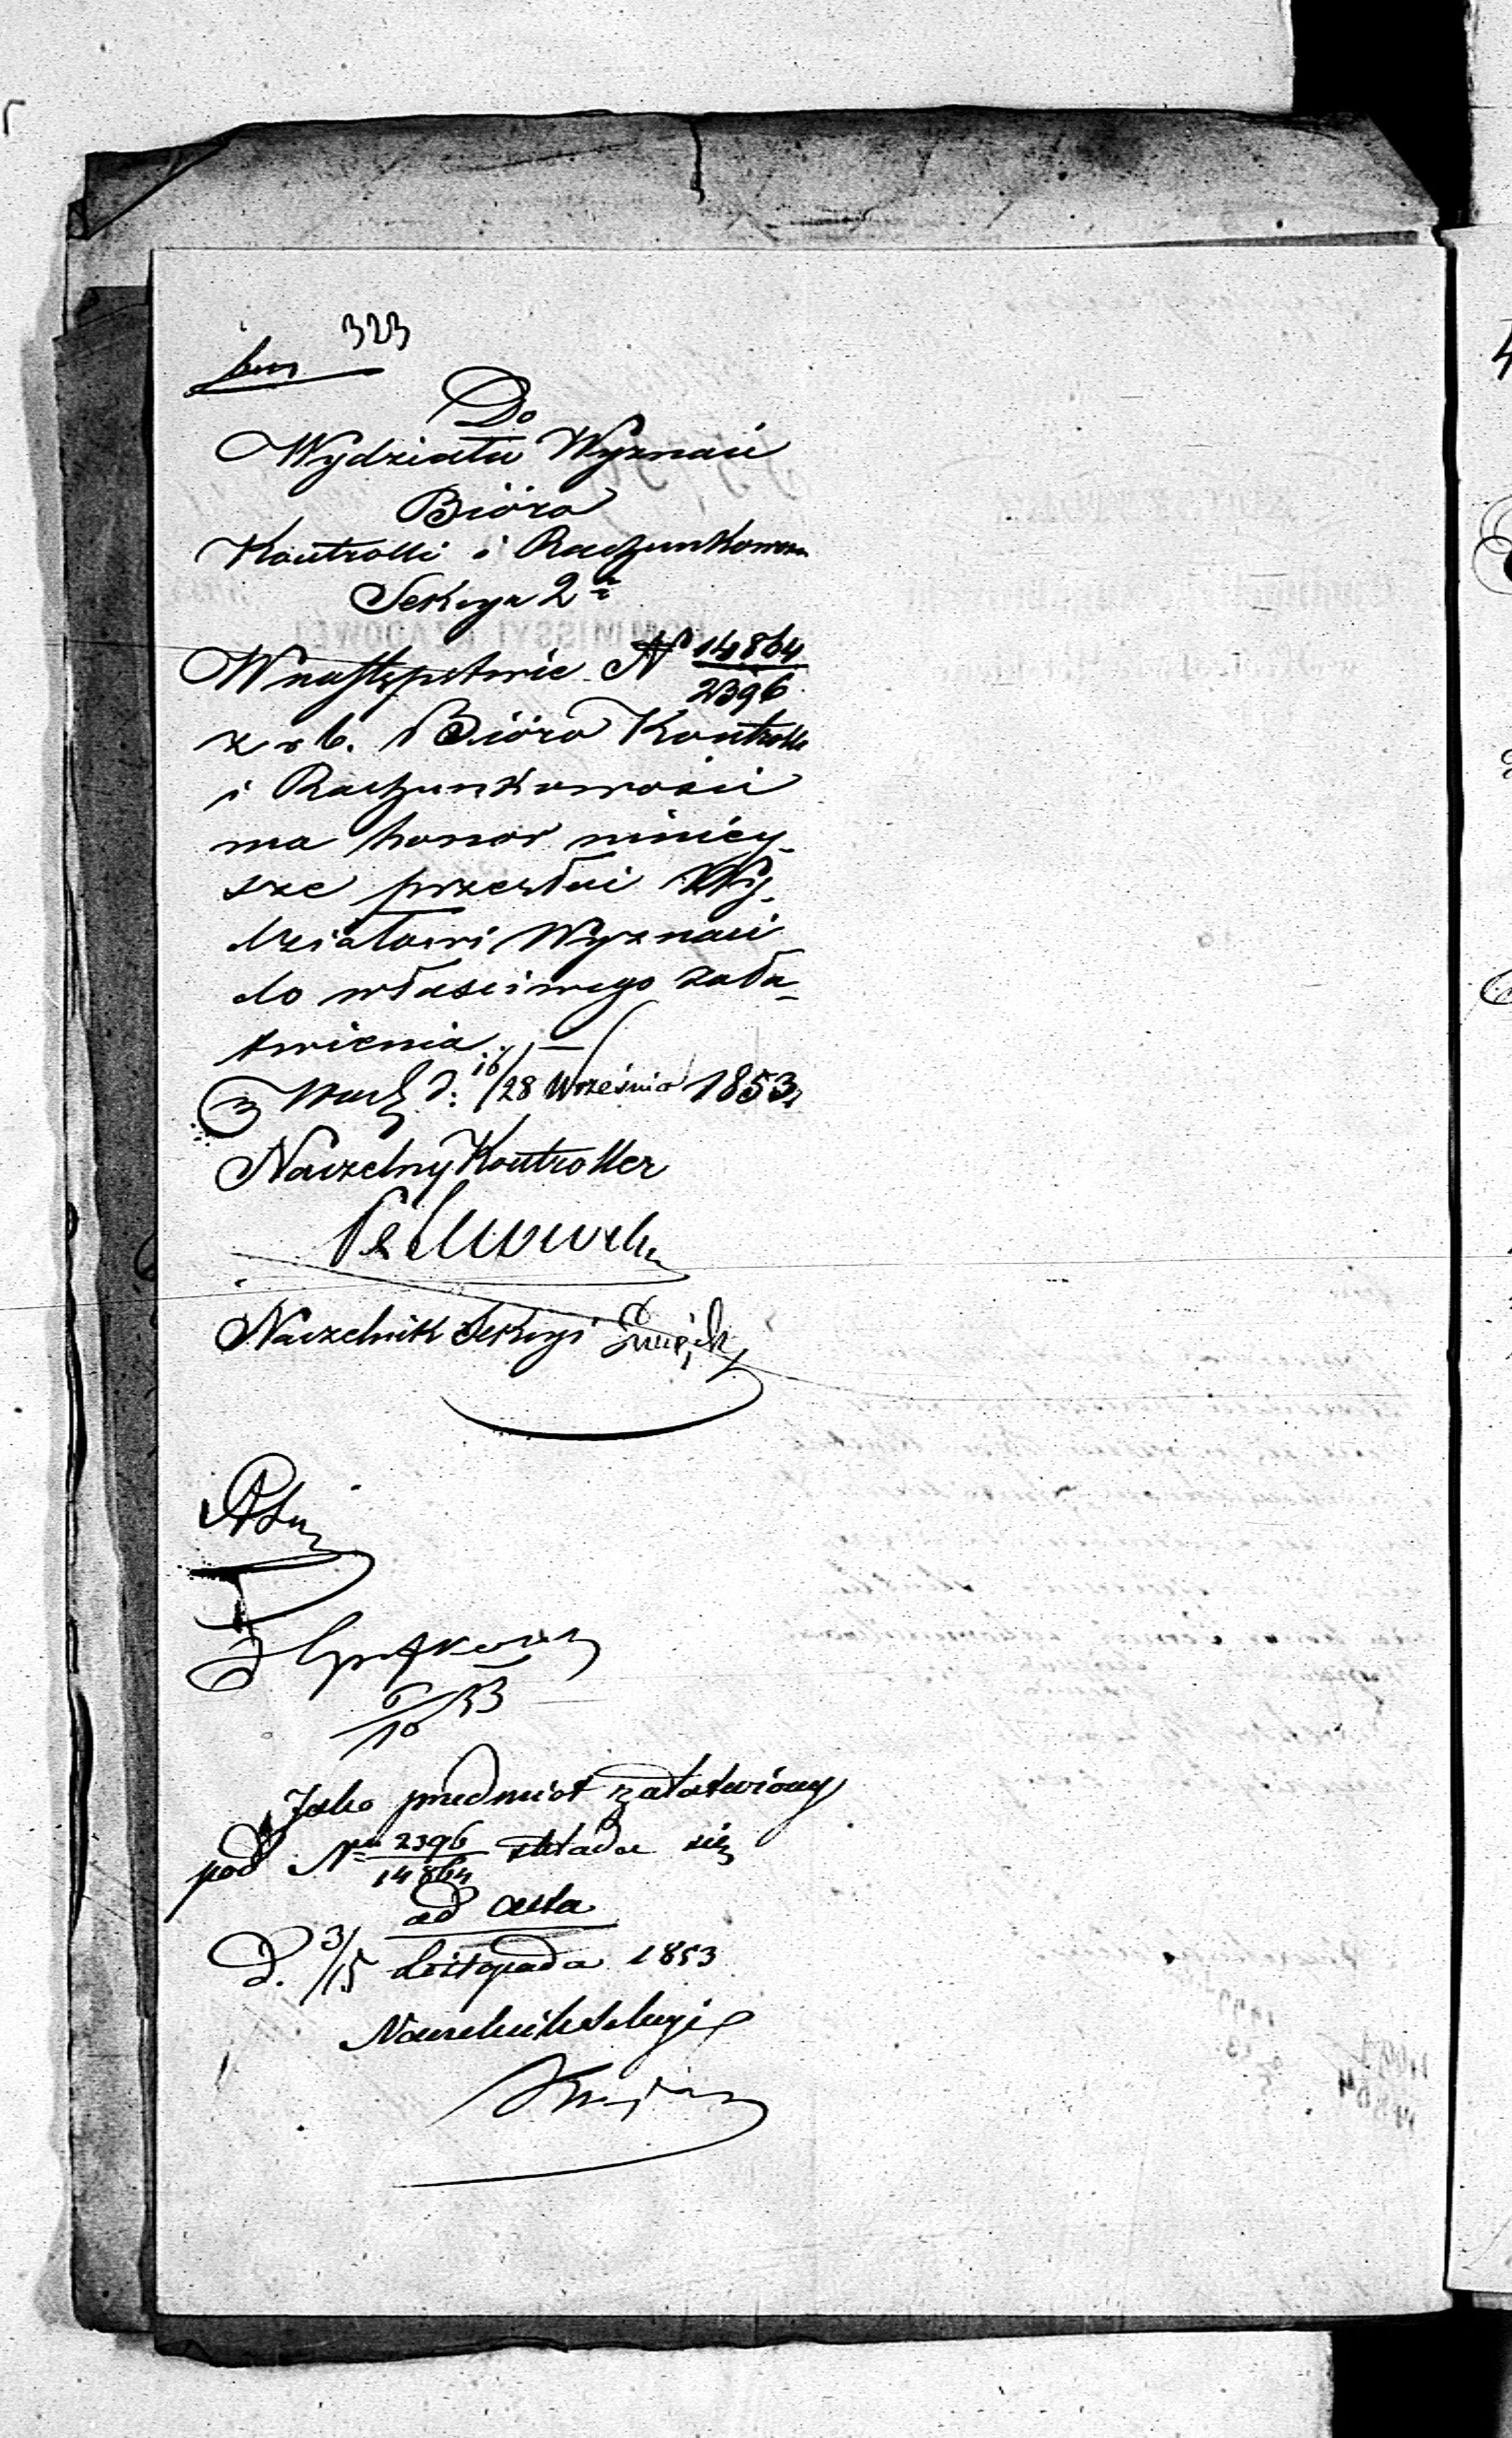 323
Do
Wydziału Wyznań
Bióro
Kontrolli i Rachunkowoś
Sekcya 2a
W następstwie No 14864/2396
z r b. Bióro Kontrolli
i Rachunkowości
ma honor niniey-
sze przesłać Wy-
działowi Wyznań
do właściwego zała-
twienia.
Warsz d: 16/28 Września 1853
Naczelny Kontroller
Naczelnik Sekcyi
6/10 53
Jako przedmiot załatwiony
pod Nem 2396/14864 składa się
ad acta
D. 3/15 Listopada 1853
Naczelnik Sekcyi